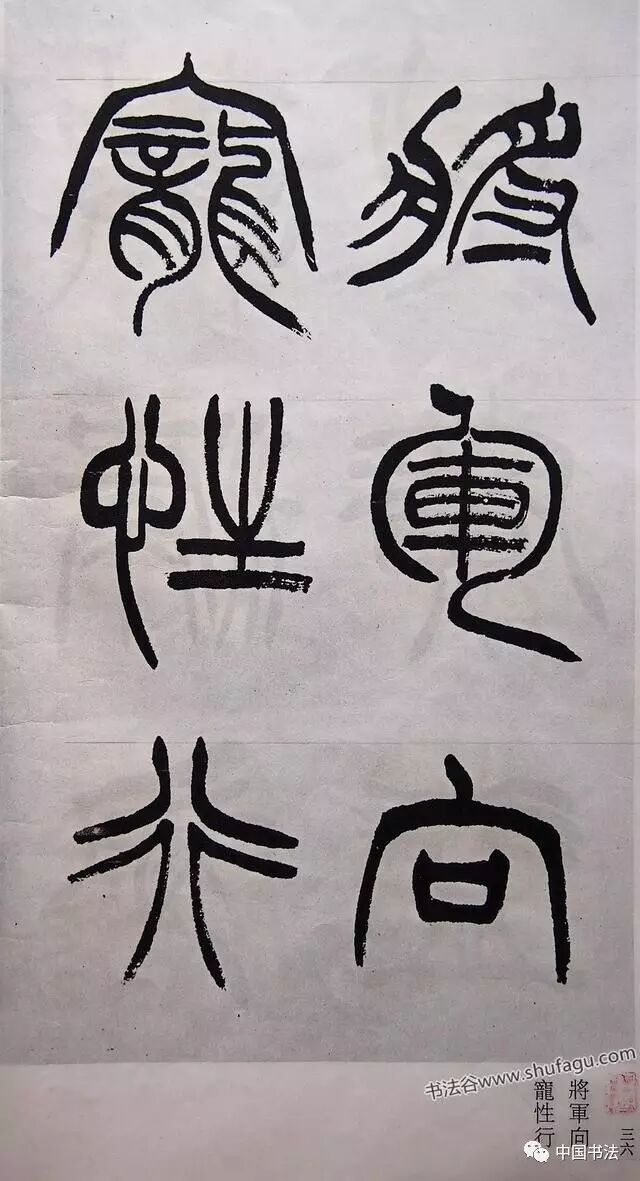 將軍向
寵性行
书法谷www.shufagu.com
將軍向
寵性行
三六
中国书法